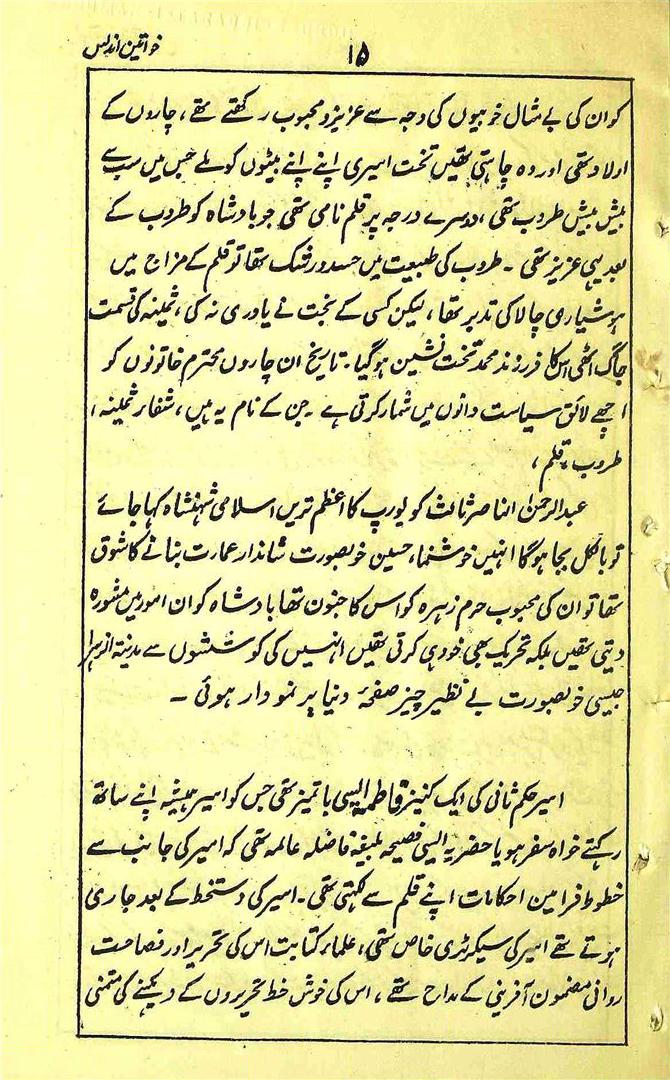 خواتین اندلس
۱۵
کو ان کی بے مثال خوبیوں کی وجہ سے عزیز و محبوب رکھتے تھے، چاروں کے
اولاد تھی اور وہ چاہتی تھیں تخت اسیری اپنے اپنے بیٹوں کو ملے جس میں سب سے
پیش پیش طروب تھی، دوسرے درجہ پر قلم نامی تھی جو بادشاہ کو طروب کے
بعد یہی عزیز تھی ۔ طروب کی طبیعت میں حسد و رشک تھا تو قلم کے مزاج میں
ہوشیاری چالاکی تدبر تھا، لیکن کسی کے بخت نے یاوری نہ کی، ثمینہ کی قسمت
جاگ اٹھی اس کا فرزند محمد تخت نشین ہو گیا۔ تاریخ ان چاروں محترم خاتونوں کو
اچھے لائق سیاست دانوں میں شمار کرتی ہے ۔ جن کے نام یہ ہیں، شفار ثمینہ،
طروب، قلم،
عبدالرحمن الناصر ثالث کو یورپ کا اعظم ترین اسلامی شہنشاہ کہا جائے
تو بالکل بجا ہوگا انہیں خوشنما، حسین خوبصورت شاندار عمارت بنانے کا شوق
تھا تو ان کی محبوب حرم زہرہ کو اس کا جنون تھا بادشاہ کو ان امور میں مشورہ
دیتی تھیں بلکہ تحریک بھی خود ہی کرتی تھیں انہیں کی کوششوں سے مدینۃ الزہرا
جیسی خوبصورت بے نظیر چیز صفحۂ دنیا پر نمودار ہوئی ۔
امیر حکم ثانی کی ایک کنیز فاطمہ ایسی باتمیز تھی جس کو امیر ہمیشہ اپنے ساتھ
رکھتے خواہ سفر ہو یا حضر یہ ایسی فصیحہ بلیغہ فاضلہ عالمہ تھی کہ امیر کی جانب سے
خطوط فرامین احکامات اپنے قلم سے لکھتی تھی ۔ امیر کی دستخط کے بعد جاری
ہوتے تھے امیر کی سیکریٹری خاص تھی، علماء کتابت اس کی تحریر اور فصاحت
روانی مضمون آفرینی کے مداح تھے، اس کی خوش خط تحریروں کے دیکھنے کی متمنی